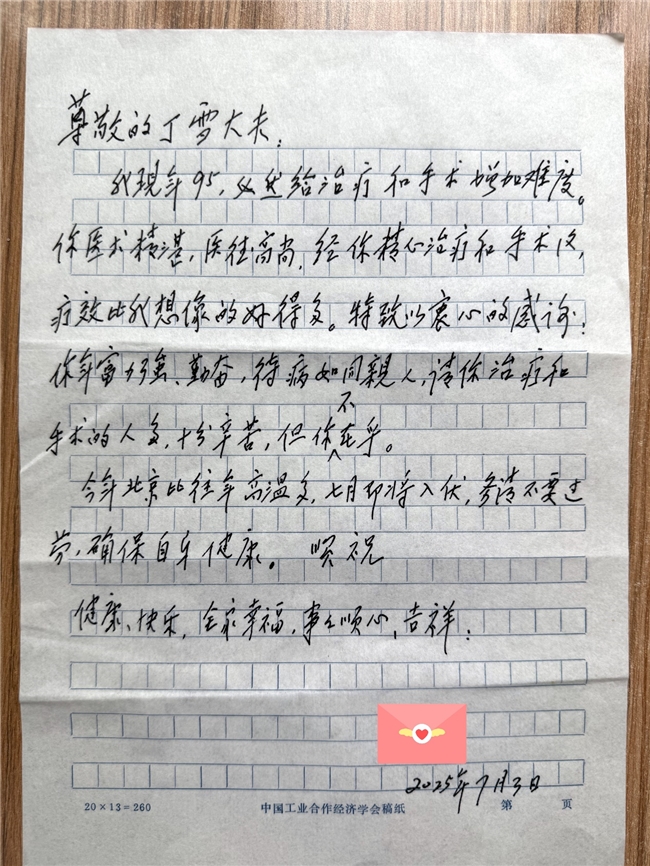 尊敬的丁雪大夫：
我现年95，必然给治疗和手术增加难度。
你医术精湛，医德高尚，经你精心治疗和手术后，
疗效比我想像的好得多。特致以衷心的感谢！
你年富力强、勤奋，待病如同親人，请你治疗和
手术的人多，十分辛苦，但你不在乎。
今年北京比往年高温多，七月即将入伏，务请不要过
劳，确保自身健康。順祝
健康、快乐，全家幸福，事事顺心，吉祥！
2025年7月3日
20×13=260 中国工业合作经济学会稿纸 第 页